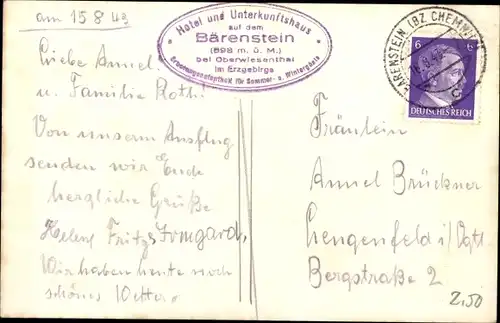 am 15 8 43
Liebe Annel
u. Familie Roth!
Von unserm Ausflug
senden wir Euch
herzliche Grüße
Helene Fritz Irmgard.
Wir haben heute noch
schönes Wetter
Hotel und Unterkunftshaus
auf dem
Bärenstein
(898 m. ü. M.)
bei Oberwiesenthal
im Erzgebirge
für Sommer- u. Wintergäste
BÄRENSTEIN (BZ CHEMNITZ)
6 6
DEUTSCHES REICH
Fräulein
Annel Brückner
Lengenfeld i/Vgtl.
Bergstraße 2
2,50